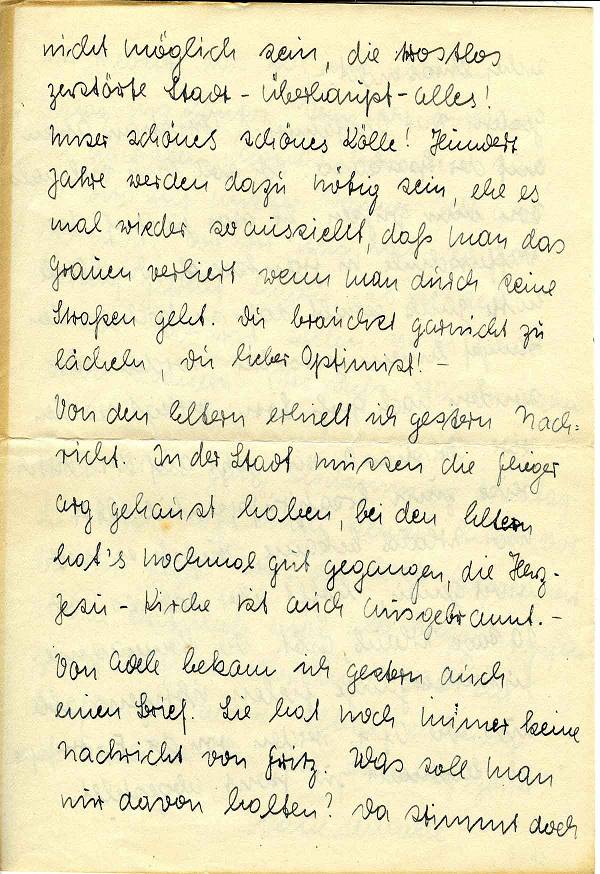 nicht möglich sein, die trostlos
zerstörte Stadt - überhaupt - alles!
Unser schönes schönes Kölle! Hundert
Jahre werden dazu nötig sein, ehe es
mal wieder so aussieht, daß man das
Grauen verliert wenn man durch seine
Straßen geht. Du brauchst garnicht zu
lächeln, du lieber Optimist! -
Von den Eltern erhielt ich gestern Nach=
richt. In der Stadt müssen die Flieger
arg gehaust haben, bei den Eltern
hat's nochmal gut gegangen, die Herz-
Jesu - Kirche ist auch ausgebrannt. -
Von Adele bekam ich gestern auch
einen Brief. Sie hat noch immer keine
Nachricht von Fritz. Was soll man
nur davon halten? Da stimmt doch